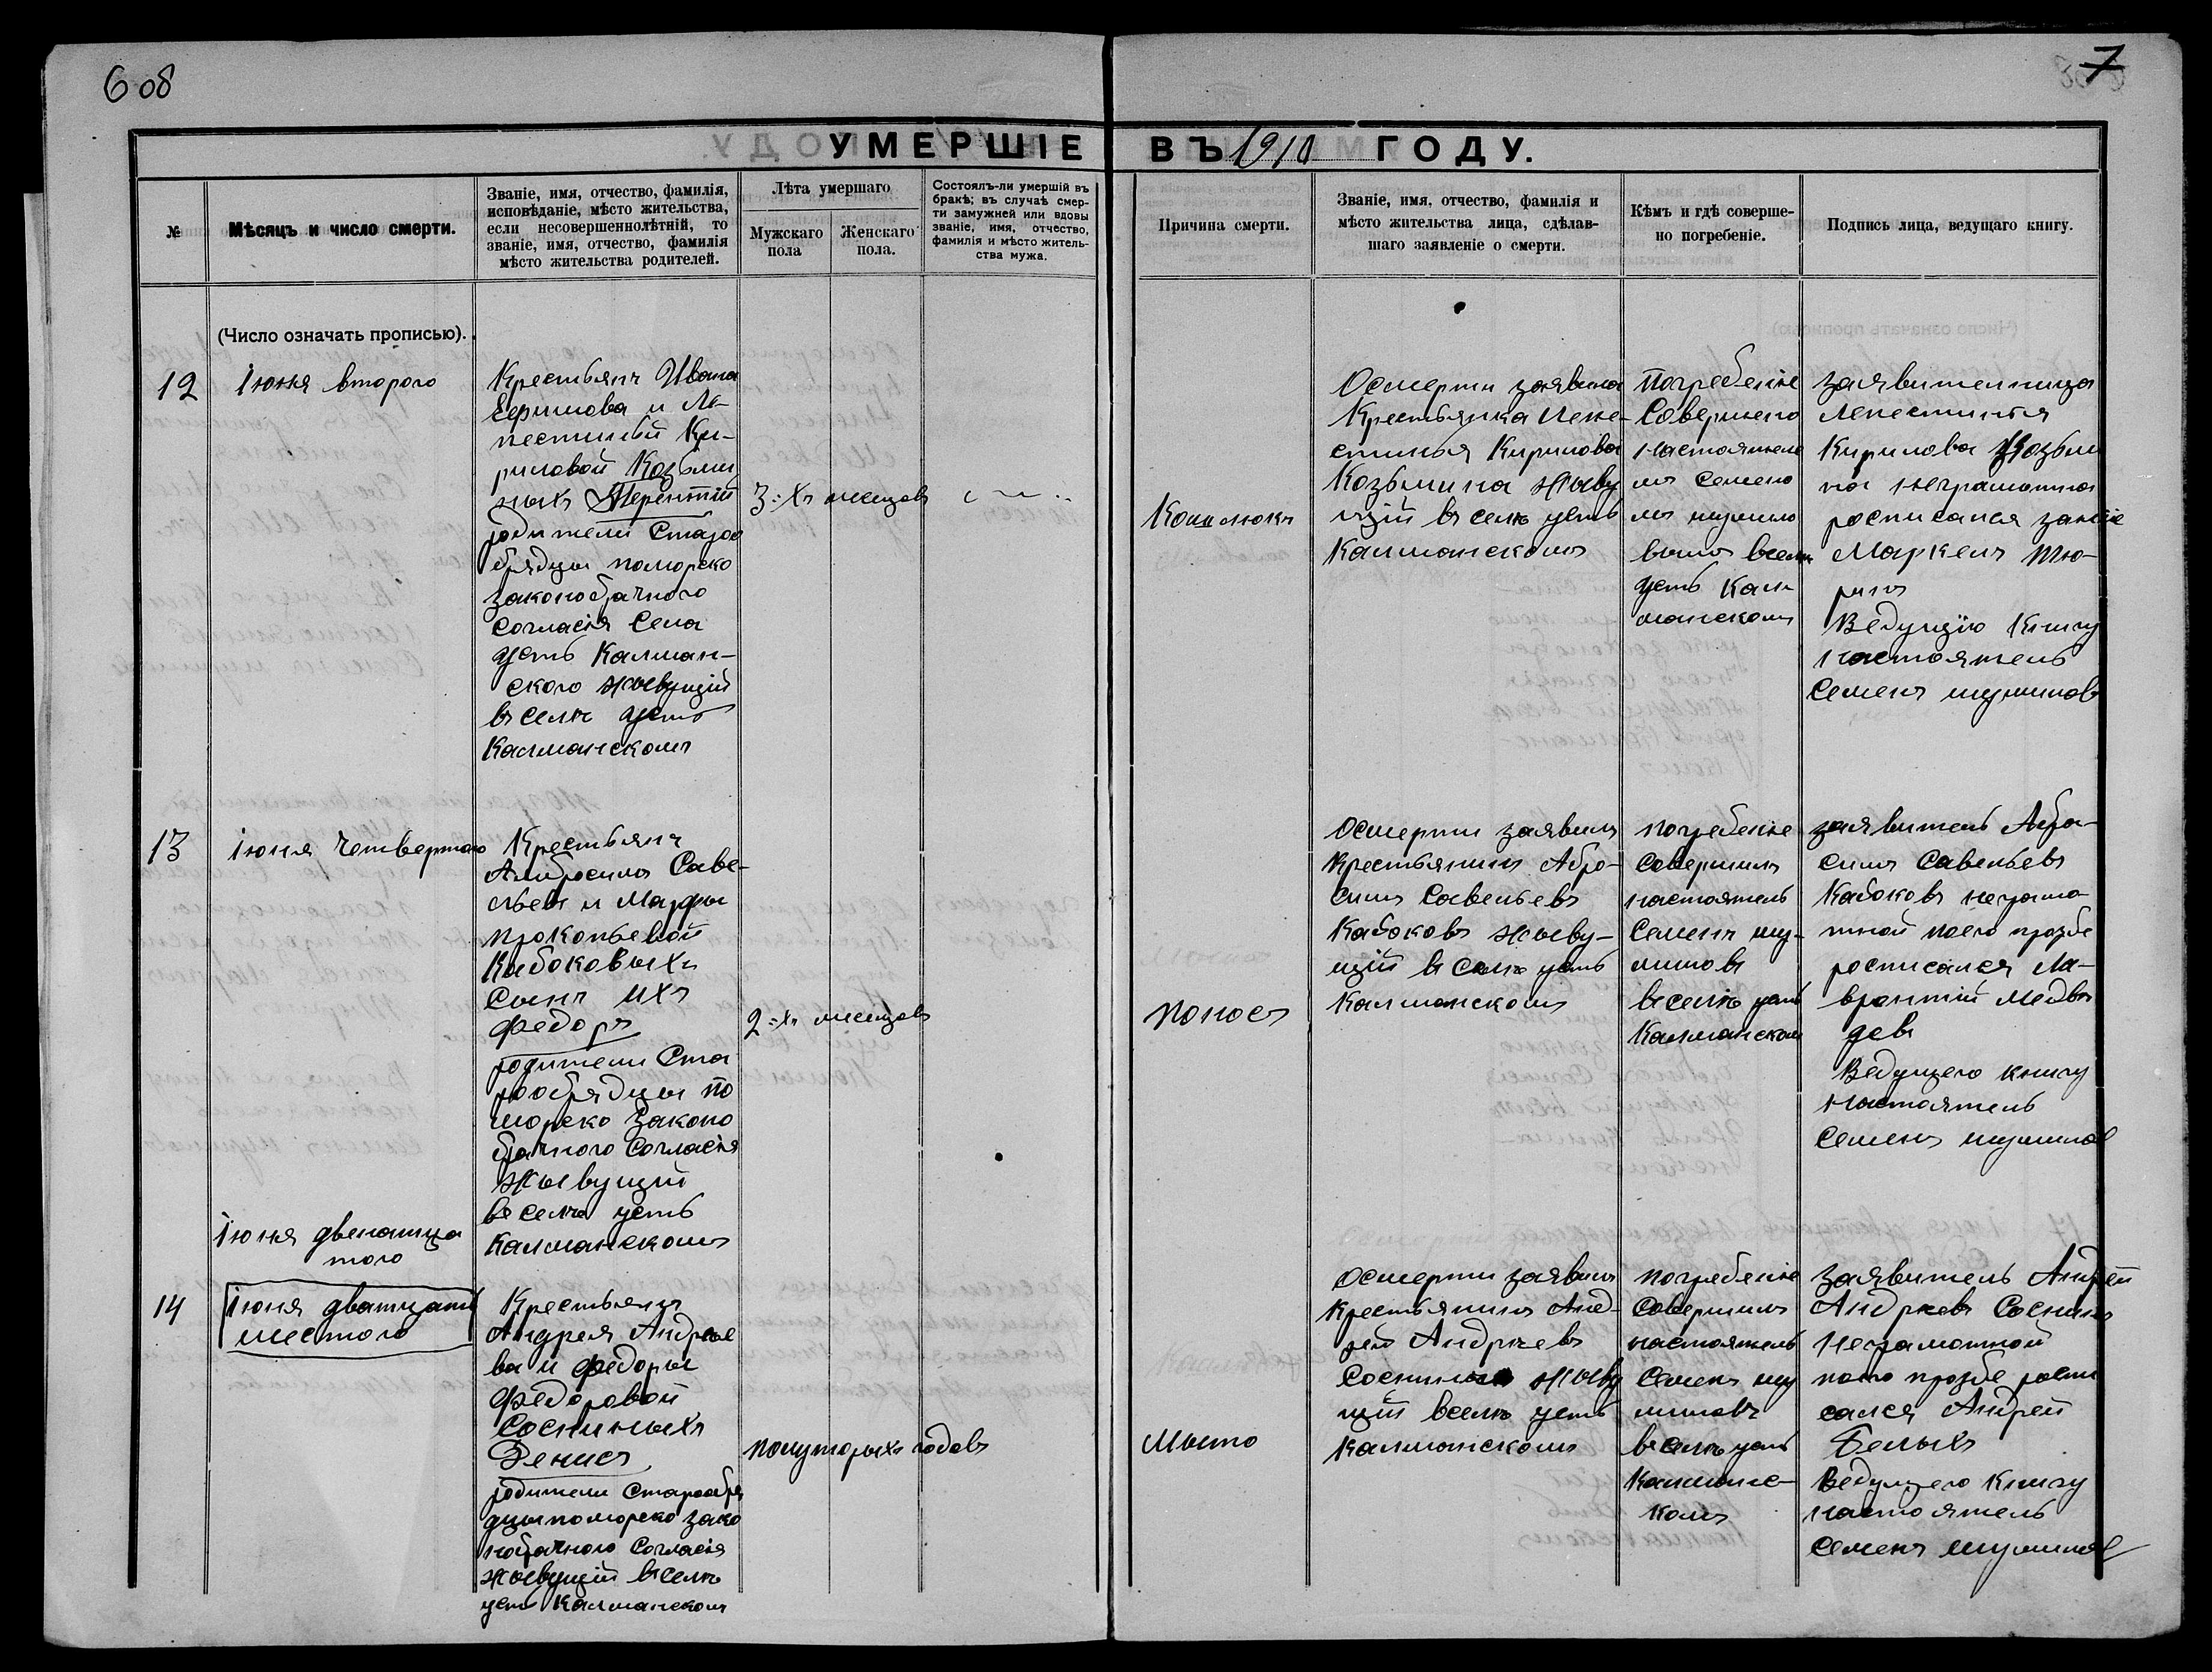 6 об
7
УМЕРШІЕ ВЪ 1910 ГОДУ.
№
Мѣсяцъ и число смерти.
Званіе, имя, отчество, фамилія,
исповѣданіе, мѣсто жительства,
если несовершеннолѣтній, то
званіе, имя, отчество, фамилія
мѣсто жительства родителей.
Лѣта умершаго
Мужскаго
пола
Женскаго
пола.
Состоялъ-ли умершій въ
бракѣ; въ случаѣ смер-
ти замужней или вдовы
званіе, имя, отчество,
фамилія и мѣсто житель-
ства мужа.
Причина смерти.
Званіе, имя, отчество, фамилія и
мѣсто жительства лица, сдѣлав-
шаго заявленіе о смерти.
Кѣмъ и гдѣ соверше-
но погребеніе.
Подпись лица, ведущаго книгу.
(Число означать прописью).
12
Іюня второго
Крестьянъ Ивана
Ефимова и Ле-
пестиньи Ки-
риловой Козьми
ныхъ Терентій
родители Старо
брядцы поморско
законобрачного
согласія Села
усть Калман-
ского жывущій
въ селѣ усть
Калманскомъ
3-хъ месецовъ
Коклюкъ
Осмерти заявила
Крестьянка Пеле-
стинья Кирилова
Козьмина жыву
щій въ селѣ усть
Калманскомъ
погребеніе
Совершено
настоятеле
мъ Семено
мъ шумило
вымъ вселѣ
усть Кал-
манскомъ
заявителница
Лепестинья
Кирилова Козьми
на неграмотна
росписался занее
Маркелъ Тю-
ринъ
Ведущію Книгу
настоятель
Семенъ шумиловъ
13
Іюня Четвертого
Крестьянъ
Амбросима Саве-
льева и Марфы
прокопьевой
Кабоковыхъ
Сынъ ихъ
Федоръ
родители Ста
рообрядцы по
морско Законо
брачного Согласія
жывущій
въ селѣ усть
Калманскомъ
2-хъ месецовъ
поносъ
Осмерти заявилъ
крестьянинъ Абро-
симъ Савельевъ
Кабоковъ жыву-
щій въ селѣ усть
Калманскомъ
погребеніе
Совершилъ
настоятель
Семенъ шу-
миловъ
вселѣ усть
Калманском
заявитель Абра-
симъ Савельевъ
Кабоковъ неграмо-
тной поего прозбе
росписался Ла-
врентій Медвѣ
девъ
Ведущего книгу
настоятель
Семенъ шумилов
14
Іюня двенатца
того
Іюня дватцать
шестого
Крестьянъ
Андрея Андрѣе
ва и Федоры
Федоровой
Сосниныхъ
Денисъ
родители Старообря
дцы поморско зако
нобрачного Согласія
жывущій вселѣ
усть Калманском
полуторыхъ годовъ
Мыто
Осмерти заявилъ
крестьянинъ Анд-
рей Андрѣевъ
Соснинъ жыву
щій вселѣ усть
Калманскомъ
погребеніе
Совершилъ
настоятель
Семенъ шу
миловъ
вселѣ усть
Калманс-
комъ
заявитель Андрей
Андрѣевъ Соснинъ
Неграмотной
поего прозбе роспи
сался Андрей
Белыхъ
Ведущего Книгу
настоятель
Семенъ шумилов